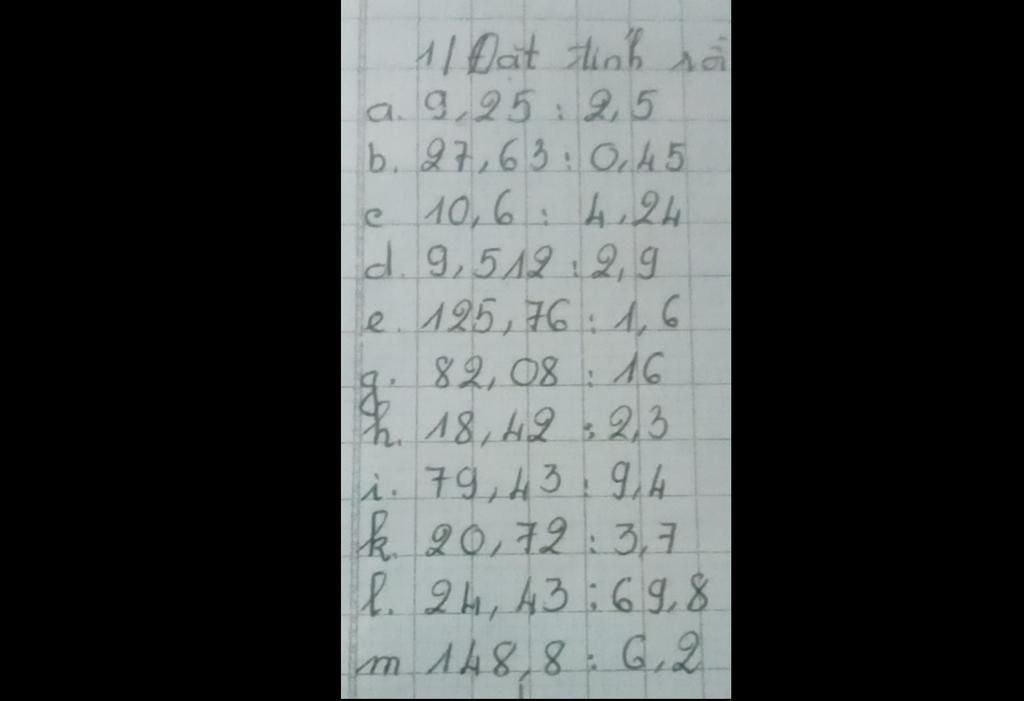 1/ Đặt tính rồi
a. 9,25 : 2,5
b. 27,63 : 0,45
c 10,6 : 4,24
d. 9,512 : 2,9
e. 125,76 : 1,6
g. 82,08 : 16
h. 18,42 : 2,3
i. 79,43 : 9,4
k. 20,72 : 3,7
l. 24,43 : 69,8
m 148,8 : 6,2